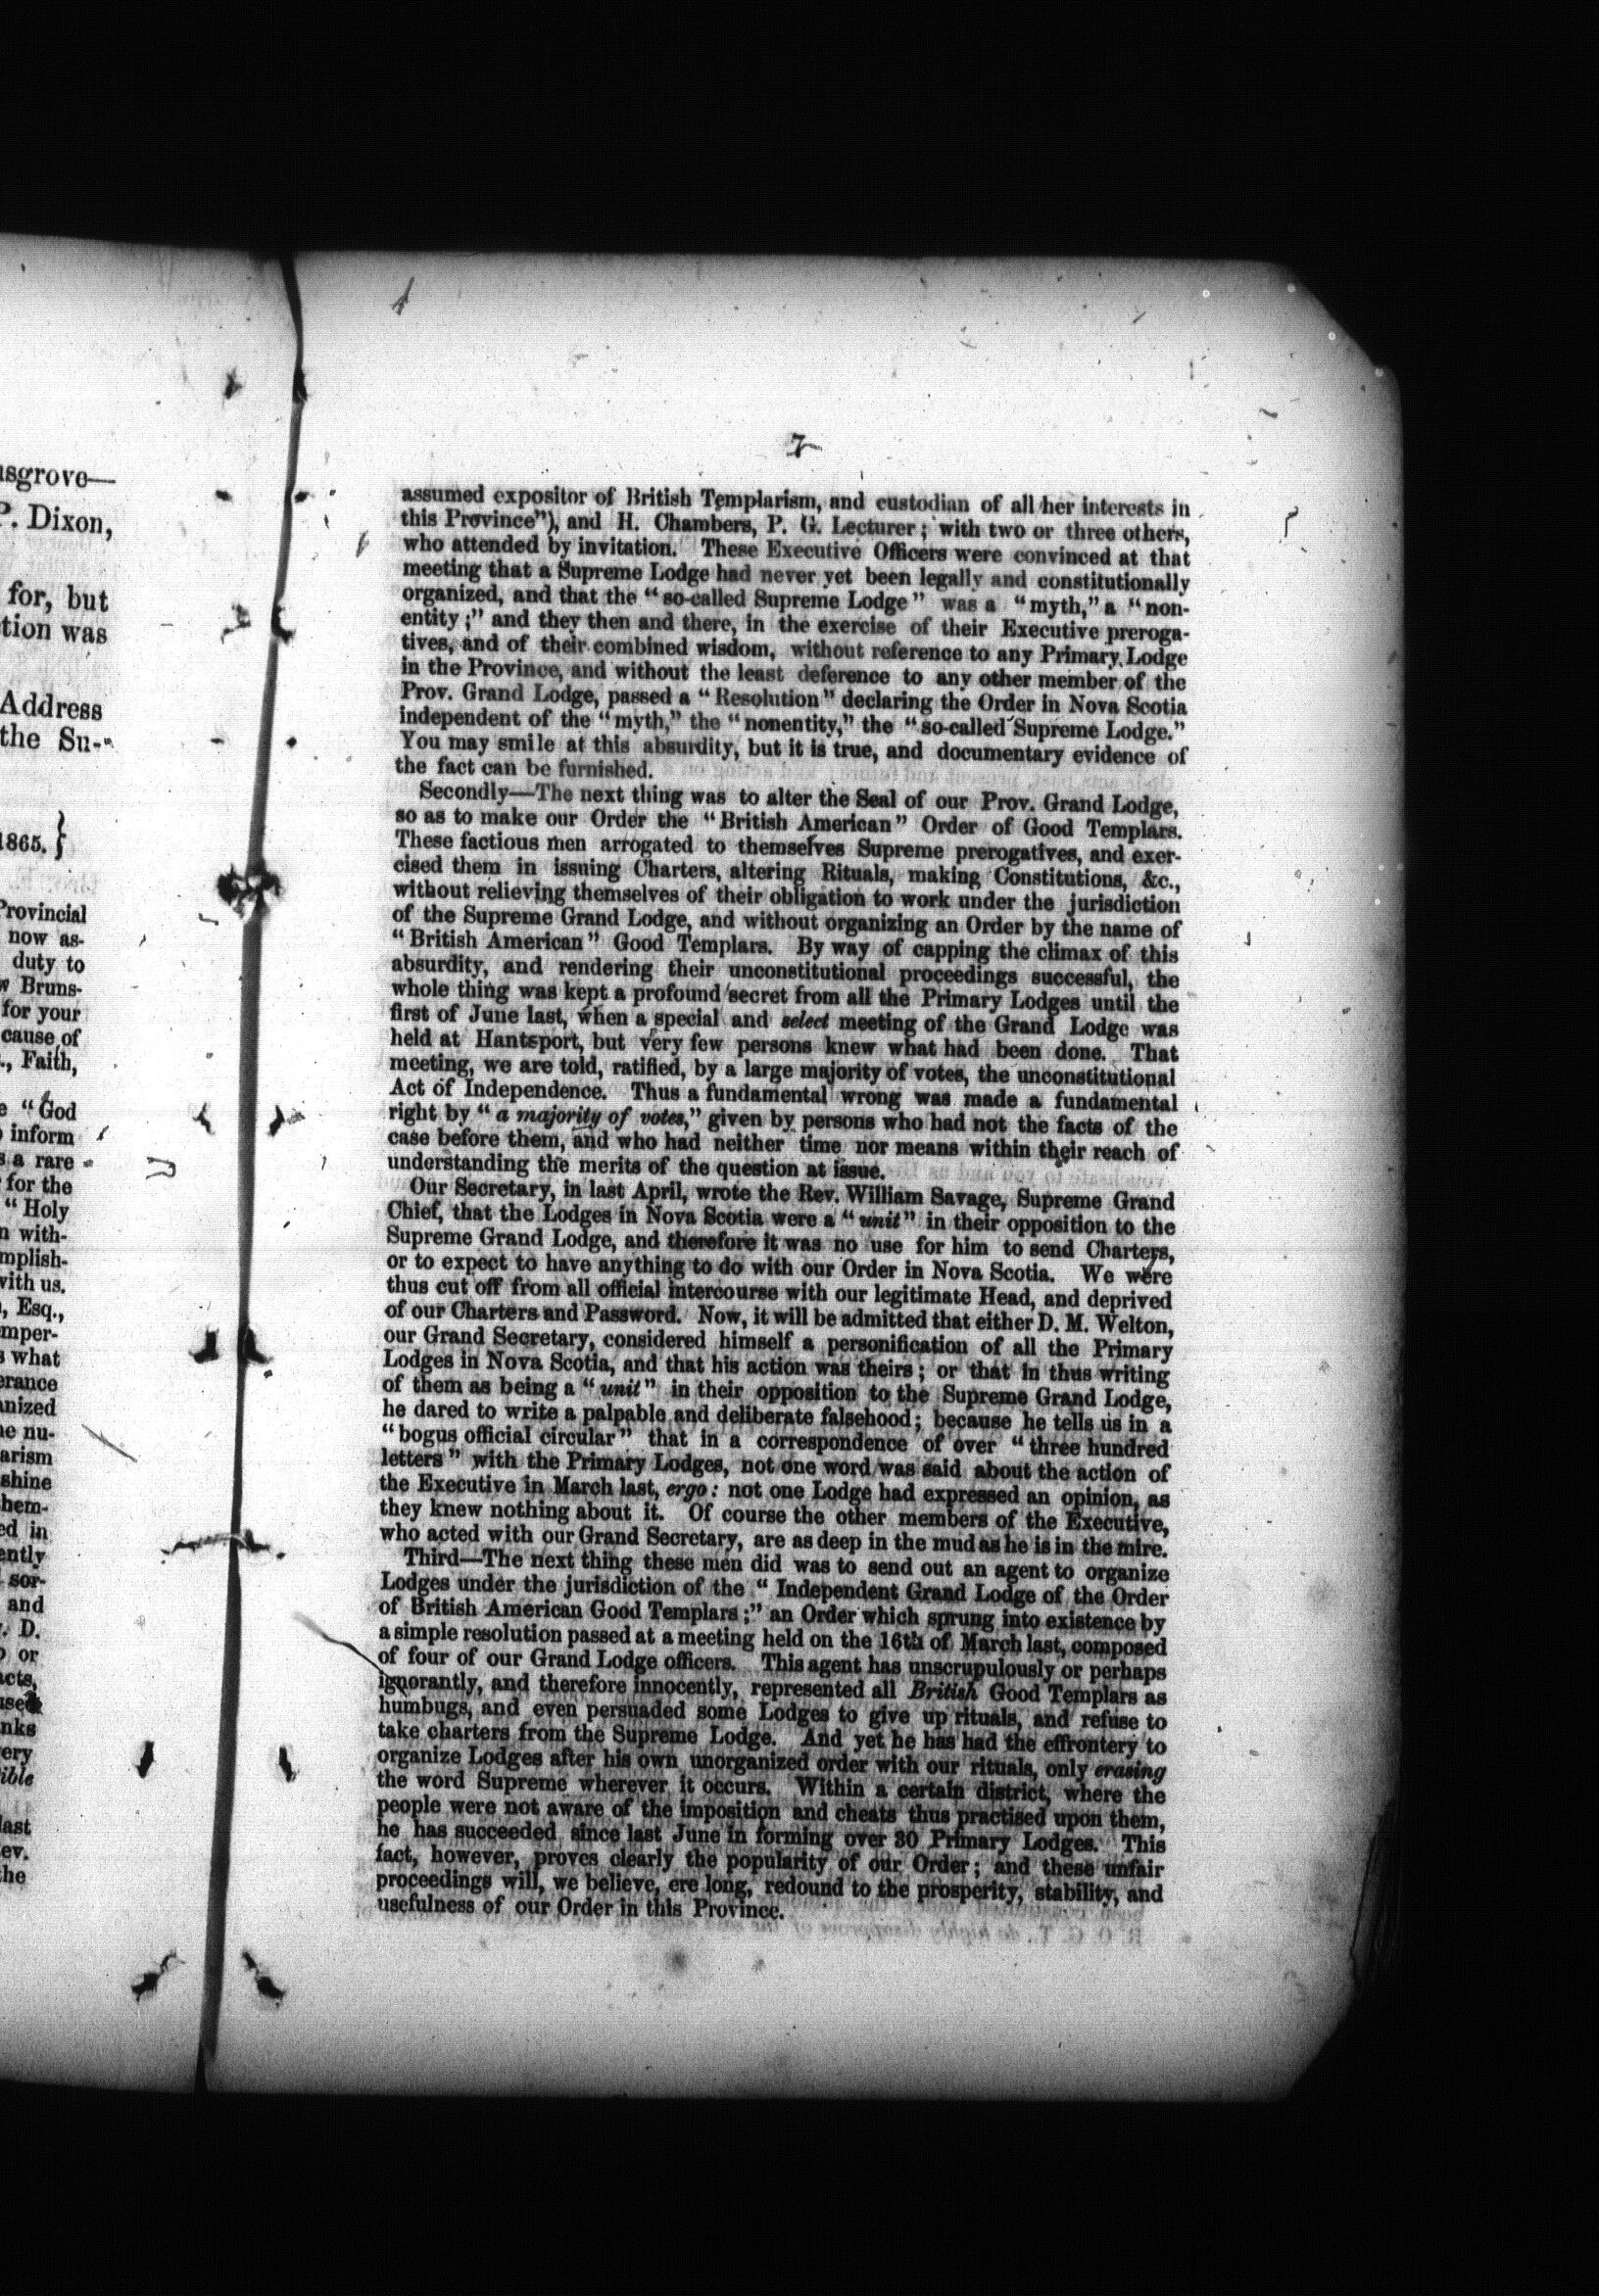 usgrove—
P. Dixon,
for, but
tion was
Address
the Su-
1865. }
Provincial
now as-
duty to
w Bruns-
for your
cause of
., Faith,
e "God
o inform
s a rare
for the
"Holy
n with-
mplish-
with us.
, Esq.,
emper-
s what
erance
anized
he nu-
arism
shine
hem-
ed in
ently
sor-
and
. D.
o or
acts,
used
nks
ery
ible
last
ev.
the
7
assumed expositor of British Templarism, and custodian of all her interests in
this Province"), and H. Chambers, P. G. Lecturer; with two or three others,
who attended by invitation. These Executive Officers were convinced at that
meeting that a Supreme Lodge had never yet been legally and constitutionally
organized, and that the "so-called Supreme Lodge" was a "myth," a "non-
entity;" and they then and there, in the exercise of their Executive preroga-
tives, and of their combined wisdom, without reference to any Primary Lodge
in the Province, and without the least deference to any other member of the
Prov. Grand Lodge, passed a "Resolution" declaring the Order in Nova Scotia
independent of the "myth," the "nonentity," the "so-called Supreme Lodge."
You may smile at this absurdity, but it is true, and documentary evidence of
the fact can be furnished.
Secondly—The next thing was to alter the Seal of our Prov. Grand Lodge,
so as to make our Order the "British American" Order of Good Templars.
These factious men arrogated to themselves Supreme prerogatives, and exer-
cised them in issuing Charters, altering Rituals, making Constitutions, &c.,
without relieving themselves of their obligation to work under the jurisdiction
of the Supreme Grand Lodge, and without organizing an Order by the name of
"British American" Good Templars. By way of capping the climax of this
absurdity, and rendering their unconstitutional proceedings successful, the
whole thing was kept a profound secret from all the Primary Lodges until the
first of June last, when a special and select meeting of the Grand Lodge was
held at Hantsport, but very few persons knew what had been done. That
meeting, we are told, ratified, by a large majority of votes, the unconstitutional
Act of Independence. Thus a fundamental wrong was made a fundamental
right by "a majority of votes," given by persons who had not the facts of the
case before them, and who had neither time nor means within their reach of
understanding the merits of the question at issue.
Our Secretary, in last April, wrote the Rev. William Savage, Supreme Grand
Chief, that the Lodges in Nova Scotia were a "unit" in their opposition to the
Supreme Grand Lodge, and therefore it was no use for him to send Charters,
or to expect to have anything to do with our Order in Nova Scotia. We were
thus cut off from all official intercourse with our legitimate Head, and deprived
of our Charters and Password. Now, it will be admitted that either D. M. Welton,
our Grand Secretary, considered himself a personification of all the Primary
Lodges in Nova Scotia, and that his action was theirs; or that in thus writing
of them as being a "unit" in their opposition to the Supreme Grand Lodge,
he dared to write a palpable and deliberate falsehood; because he tells us in a
"bogus official circular" that in a correspondence of over "three hundred
letters" with the Primary Lodges, not one word was said about the action of
the Executive in March last, ergo: not one Lodge had expressed an opinion, as
they knew nothing about it. Of course the other members of the Executive,
who acted with our Grand Secretary, are as deep in the mud as he is in the mire.
Third—The next thing these men did was to send out an agent to organize
Lodges under the jurisdiction of the "Independent Grand Lodge of the Order
of British American Good Templars;" an Order which sprung into existence by
a simple resolution passed at a meeting held on the 16th of March last, composed
of four of our Grand Lodge officers. This agent has unscrupulously or perhaps
ignorantly, and therefore innocently, represented all British Good Templars as
humbugs, and even persuaded some Lodges to give up rituals, and refuse to
take charters from the Supreme Lodge. And yet he has had the effrontery to
organize Lodges after his own unorganized order with our rituals, only erasing
the word Supreme wherever it occurs. Within a certain district, where the
people were not aware of the imposition and cheats thus practised upon them,
he has succeeded since last June in forming over 30 Primary Lodges. This
fact, however, proves clearly the popularity of our Order; and these unfair
proceedings will, we believe, ere long, redound to the prosperity, stability, and
usefulness of our Order in this Province.